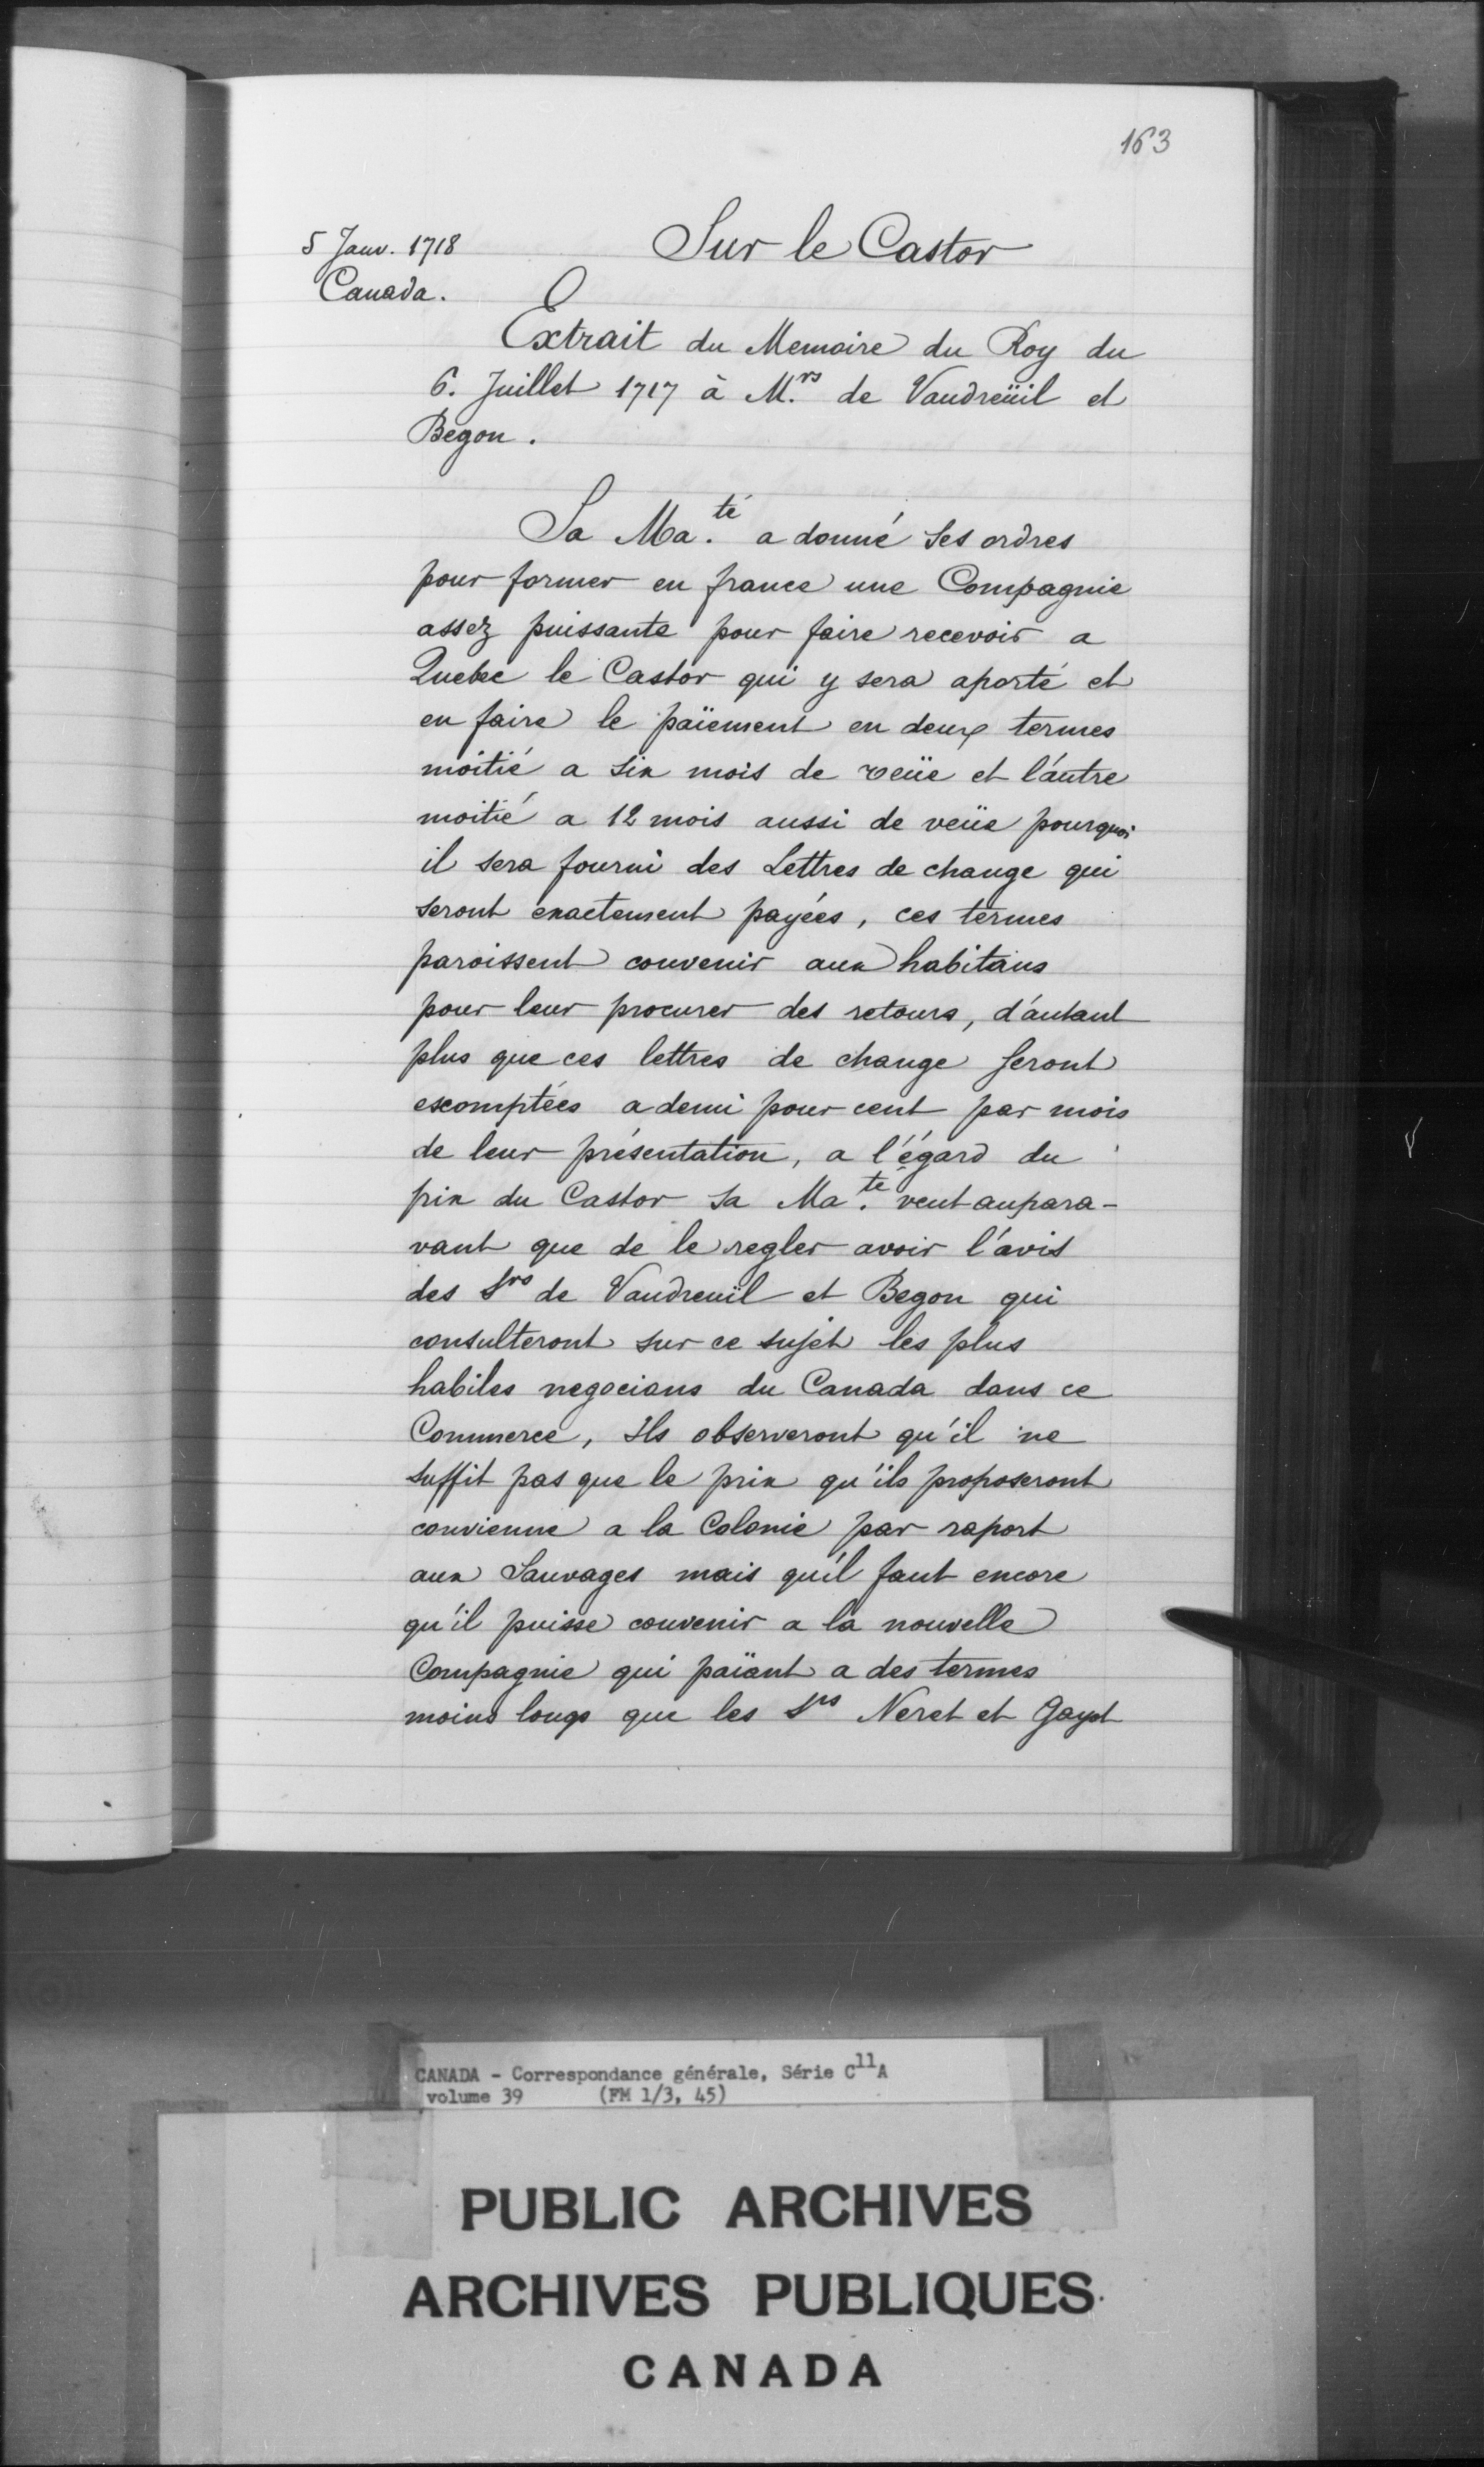 163
5 Janv. 1718
Canada.
Sur le Castor
Extrait du Memoire du Roy du
6. Juillet 1717 à M.rs de Vaudreüil et
Begon.
Sa Ma.té a donné ses ordres
pour former en france une Compagnie
assez puissante pour faire recevoir a
Quebec le Castor qui y sera aporté et
en faire le païement en deux termes
moitié a six mois de veüe et l'autre
moitié a 12 mois aussi de veüe pourquoi
il sera fourni des Lettres de change qui
seront exactement payées, ces termes
paroissent convenir aux habitans
pour leur procurer des retours, d'autant
plus que ces lettres de change seront
escomptées a demi pour cent par mois
de leur présentation, a l'égard du
prix du Castor sa Ma.té veut aupara-
vant que de le regler avoir l'avis
des Srs de Vaudreuil et Begon qui
consulteront sur ce sujet les plus
habiles negocians du Canada dans ce
Commerce, Ils observeront qu'il ne
suffit pas que le prix qu'ils proposeront
convienne a la Colonie par raport
aux Sauvages mais qu'il faut encore
qu'il puisse convenir a la nouvelle
Compagnie qui païant a des termes
moins longs que les Srs Neret et Gayot
CANADA - Correspondance générale, Série C11A
volume 39 (FM 1/3, 45)
PUBLIC ARCHIVES
ARCHIVES PUBLIQUES
CANADA